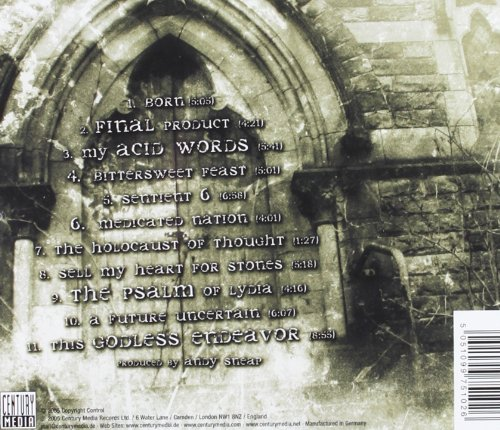 1. BORN (5:05)
2. FINAL PRODUCT (4:21)
3. MY ACID WORDS (5:41)
4. BITTERSWEET FEAST (5:01)
5. SENTIENT 6 (6:58)
6. MEDICATED NATION (4:01)
7. THE HOLOCAUST OF THOUGHT (1:27)
8. SELL MY HEART FOR STONES (5:18)
9. THE PSALM OF LYDIA (4:16)
10. A FUTURE UNCERTAIN (6:07)
11. THIS GODLESS ENDEAVOR (8:55)
PRODUCED BY ANDY SNEAP
CENTURY
MEDIA
℗ 2005 Copyright Control
© 2005 Century Media Records Ltd. / 6 Water Lane / Camden / London NW1 8NZ / England
mail@centurymedia.de · Web Sites: www.centurymedia.de · www.centurymedia.com · www.centurymedia.net - Manufactured in Germany